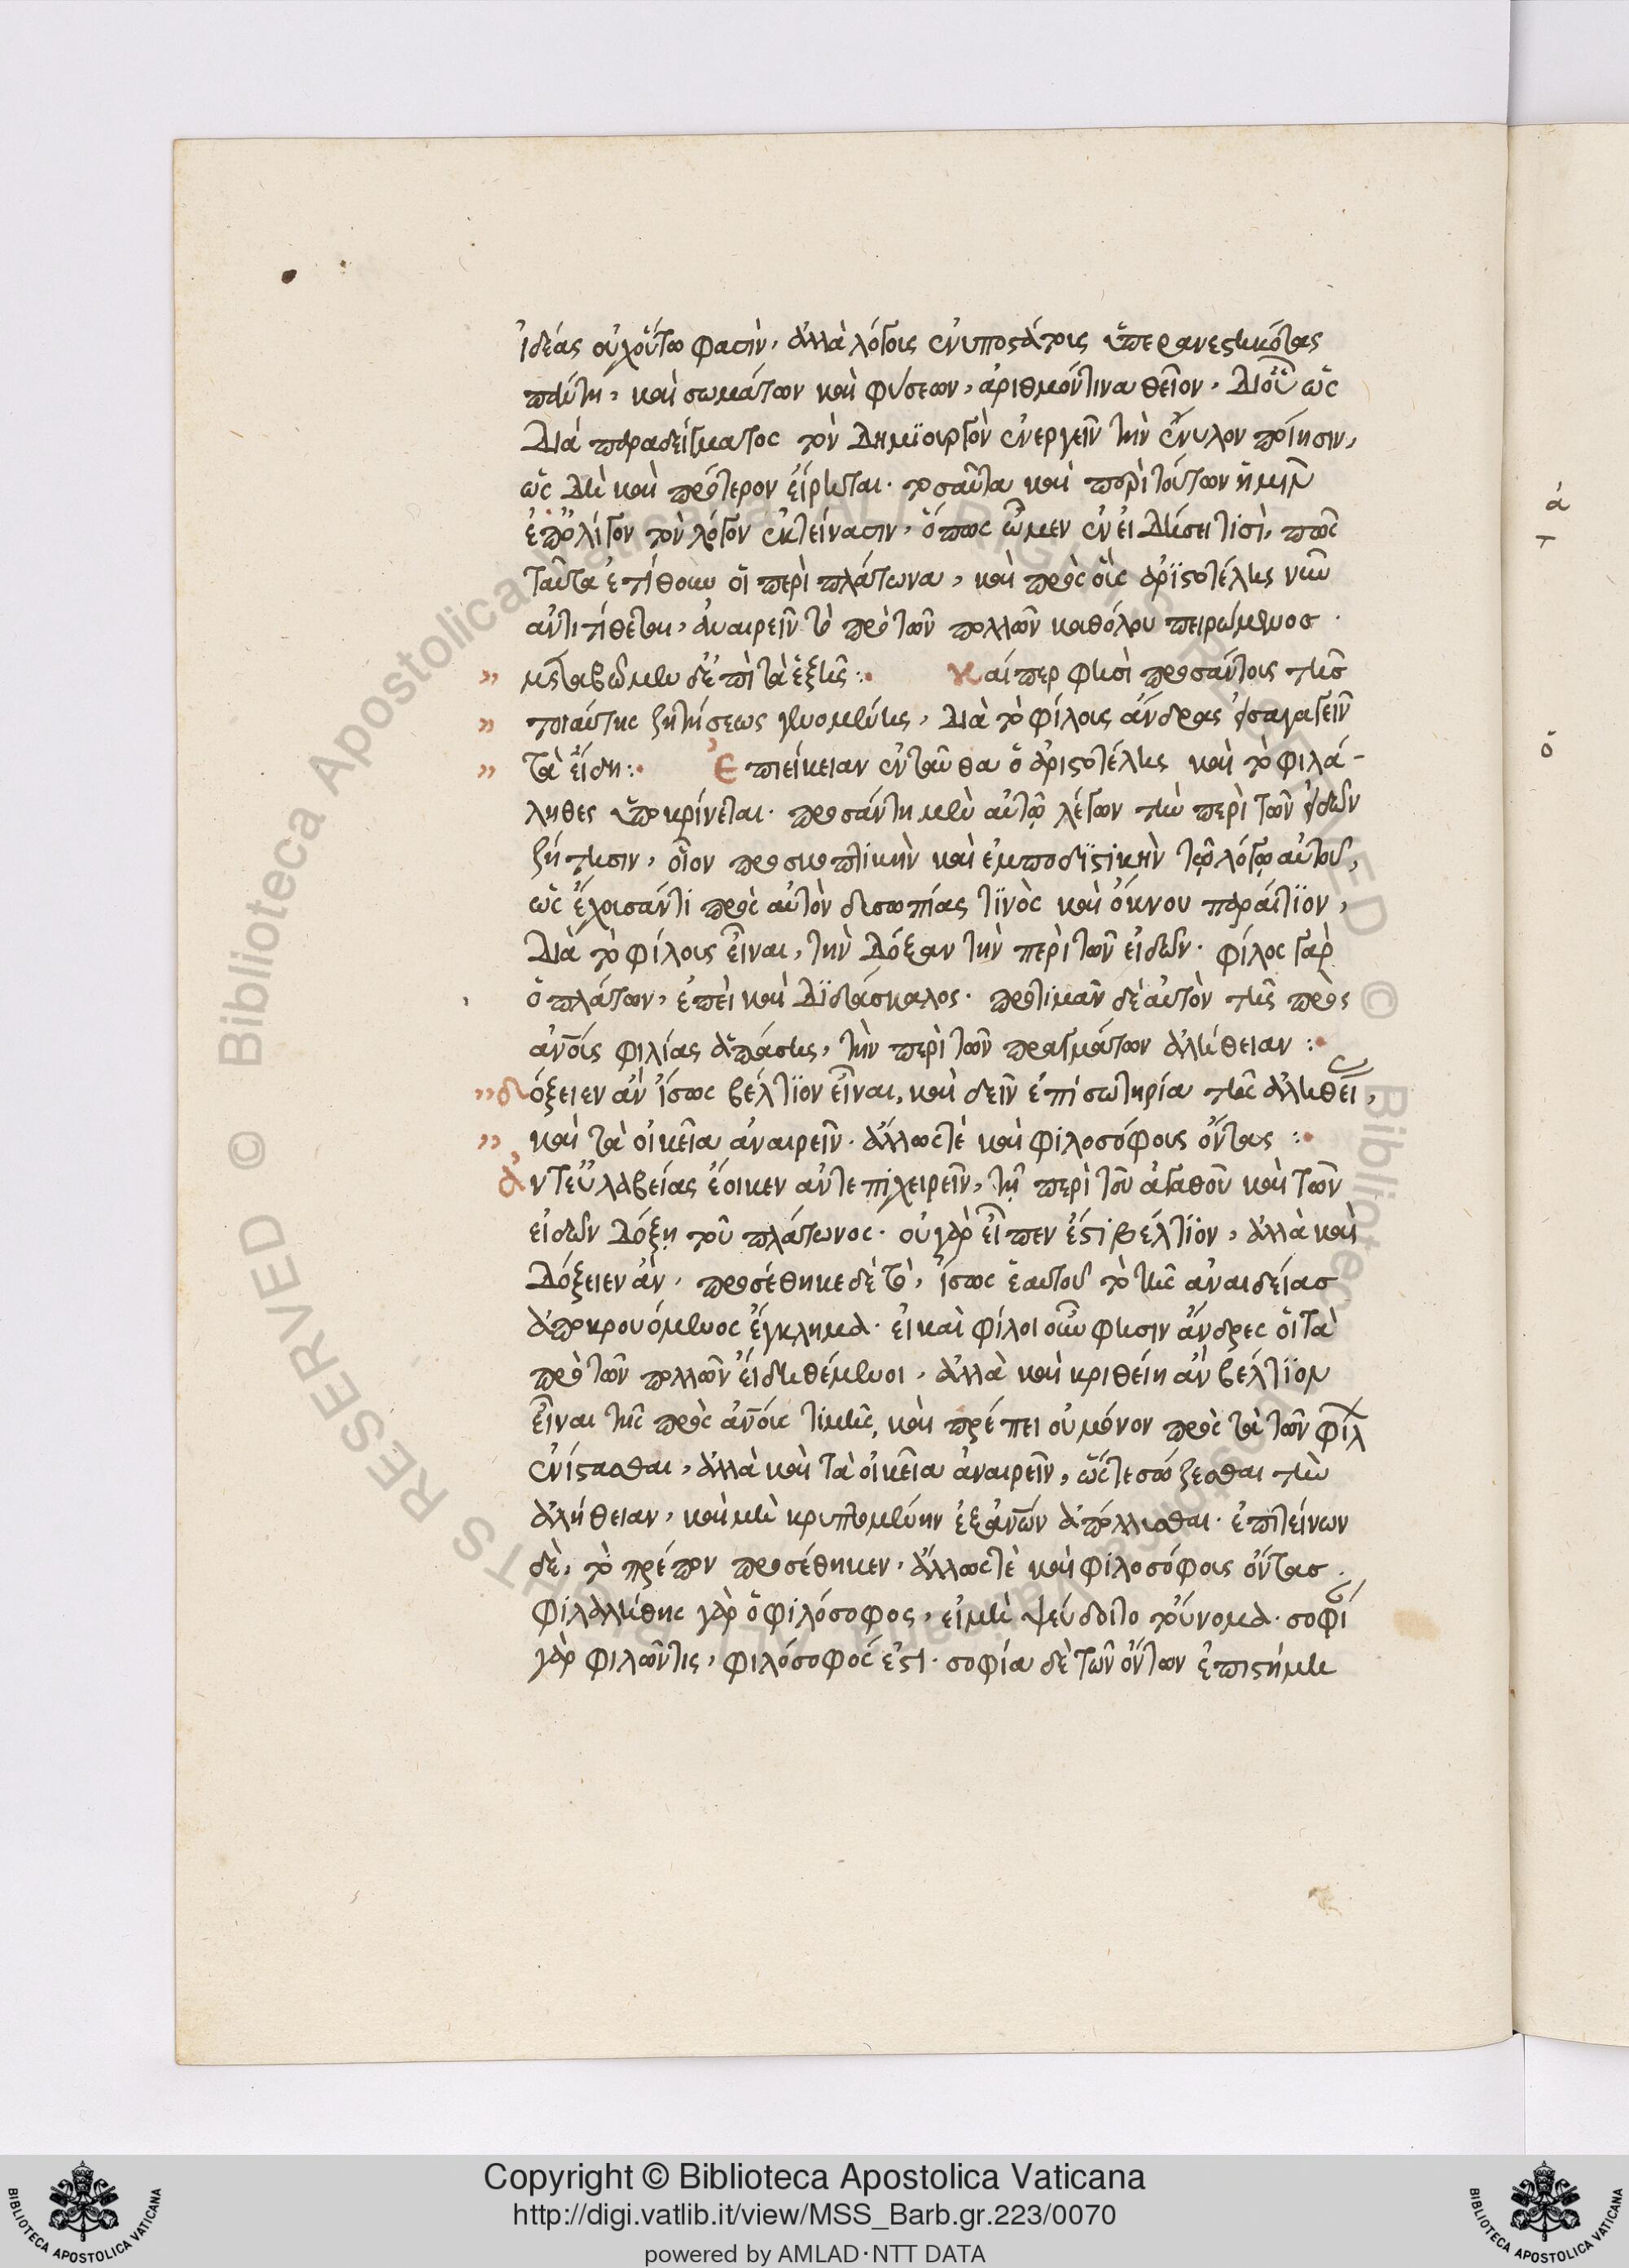 ἰδέας οὐχοὕτω φασὶν, ἀλλὰ λόγοις ἐνυποστάτοις ὑπερανεστηκότας
παύτη, καὶ σωμάτων καὶ φύσεων, ἀριθμόν τινα θεῖον. διοὗ ὡς
διὰ παραδείγματος τὸν δημϊουργὸν ἐνεργεῖν τὴν ἔνυλον ποίησιν,
ὡς δὴ καὶ πρότερον εἴρηται. τοσαῦτα καὶ περὶ τούτων ἡμῖν
ἐπ' ὀλίγον τὸν λόγον ἐκτείνασιν, ὅπως ὦμεν ἐν εἰδήσει τϊσὶ, πῶς
ταῦτα ἐτίθουν οἱ περὶ πλάτωνα, καὶ πρὸς οἷς ἀρϊστοτέλης νῦν
ἀντιτίθεται, ἀναιρεῖν τὸ πρὸ τῶν πολλῶν καθόλου πειρώμενος.
» μεταβῶμεν δ' ἐπὶ τὰ ἑξῆς: Καίπερ φησὶ προσάντους τῆς
» τοιαύτης ζητήσεως γινομένης, διὰ τὸ φίλους ἄνδρας εἰσαγαγεῖν
» τὰ εἴδη: Ἐπιείκειαν ἐνταῦθα ὁ ἀριστοτέλης καὶ τὸ φιλά-
ληθες ὑποκρίνεται. προσάντη μὲν αὐτῷ λέγων τὴν περὶ τῶν εἰδῶν
ζήτησιν, οἷον προσκοπτικὴν καὶ ἐμποδϊστικὴν τῷ λόγῳ αὐτοῦ,
ὡς ἐχούσαν τι πρὸς αὐτὸν δυσωπίας τϊνὸς καὶ ὄκνου παραίτϊον,
διὰ τὸ φίλους εἶναι, τὴν δόξαν τὴν περὶ τῶν εἰδῶν. φίλος γὰρ
ὁ πλάτων, ἐπεὶ καὶ δϊδάσκαλος. προτιμᾶν δὲ αὐτὸν τῆς πρὸς
ἀνους φιλίας ἁπάσης, τὴν περὶ τῶν πραγμάτων ἀλήθειαν:
» δόξειεν ἂν ἴσως βέλτϊον εἶναι, καὶ δεῖν ἐπὶ σωτηρία τῆς ἀληθεί,
» καὶ τὰ οἰκεῖα ἀναιρεῖν. ἄλλως τὲ καὶ φιλοσόφους ὄντας:
Ἀντ' εὐλαβείας ἔοικεν ἀντεπιχειρεῖν, τῇ περὶ τοῦ ἀγαθοῦ καὶ τῶν
εἰδῶν δόξῃ τοῦ πλάτωνος. οὐ γὰρ εἶπεν ἐστὶ βέλτϊον, ἀλλὰ καὶ
δόξειεν ἂν. προσέθηκε δὲ τὸ, ἴσως ἑαυτοῦ τὸ τῆς ἀναιδείας
ἀποκρουόμενος ἔγκλημα. εἰ καὶ φίλοι οὖν φησιν ἄνδρες οἱ τὰ
πρὸ τῶν πολλῶν εἴδη θέμενοι, ἀλλὰ καὶ κριθείη ἂν βέλτϊον
εἶναι τῆς πρὸς ἀνους τιμῆς, καὶ πρέπει οὐ μόνον πρὸς τὰ τῶν φίλ
ἐνίστασθαι, ἀλλὰ καὶ τὰ οἰκεῖα ἀναιρεῖν, ὥστε σώζεσθαι τὴν
ἀλήθειαν, καὶ μὴ κρυπτομένην ἐξ ἀνων ἀπόλλυσθαι. ἐπιτείνων
δὲ, τὸ πρέπον προσέθηκεν, ἄλλως τὲ καὶ φιλοσόφους ὄντας.
φιλαλήθης γὰρ ὁ φιλόσοφος, εἰ μὴ ψεύδοιτο τοὔνομα. σοφί
γὰρ φιλῶν τις, φιλόσοφός ἐστι. σοφία δὲ τῶν ὄντων ἐπιστήμη
ἀ
τ
ὁ
© Biblioteca Apostolica Vaticana ALL RIGHTS RESERVED
© Biblioteca Apostolica Vaticana ALL RIGHTS RESERVED
Copyright © Biblioteca Apostolica Vaticana
http://digi.vatlib.it/view/MSS_Barb.gr.223/0070
powered by AMLAD·NTT DATA
BIBLIOTECA APOSTOLICA VATICANA
BIBLIOTECA APOSTOLICA VATICANA